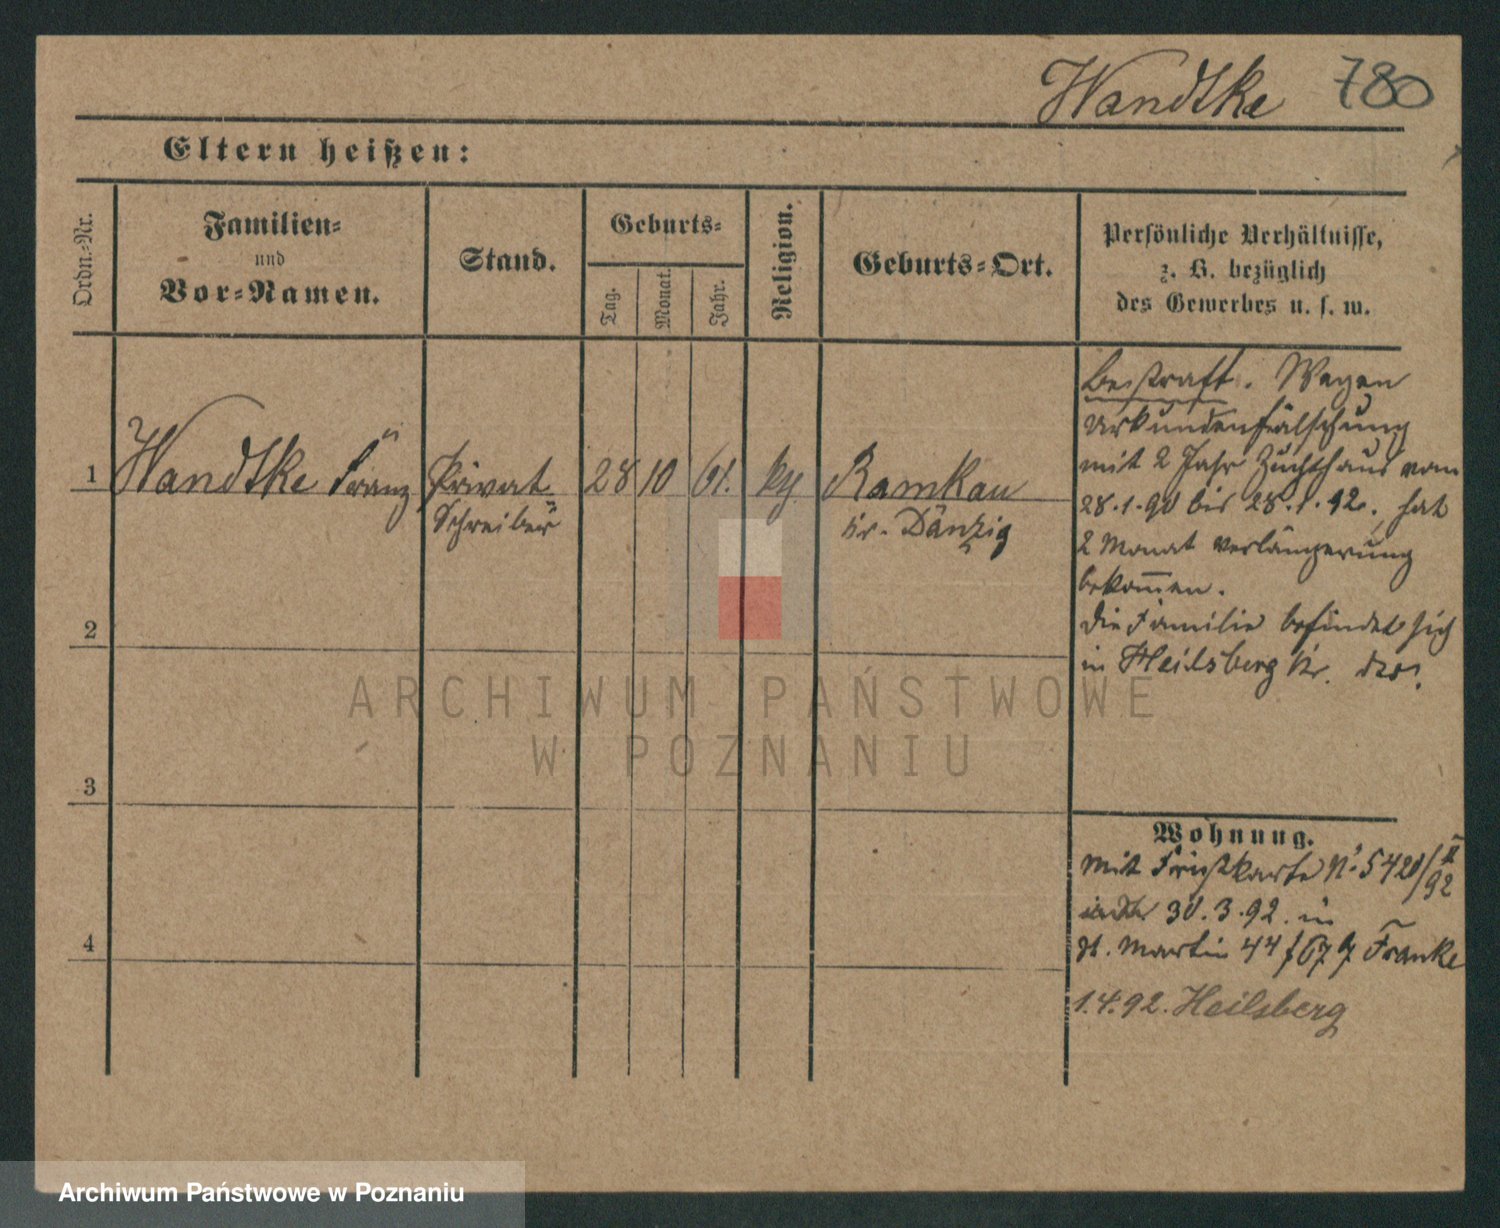 Wandtke 780
Eltern heißen:
Ordn.-Nr.
Familien-
und
Vor-Namen.
Stand.
Geburts-
Tag.
Monat.
Jahr.
Religion.
Geburts-Ort.
Persönliche Verhältnisse,
z. B. bezüglich
des Gewerbes u. s. w.
1 Wandtke Franz Privat 28 10 61. Ramkau
Schreiber Kr. Danzig
Bestraft. Wegen
Urkundenfälschung
mit 2 Jahr Zuchthaus vom
28.1.90 bis 28.1.92., hat
2 Monat verlängerung
bekom̅en.
Die Familie befindet sich
in Heilsberg Kr.
2
3
4
Wohnung.
mit Fristkarte No 5420/
92
30.3.92. in
St. Martin 44 Franke
1.4.92. Heilsberg
ARCHIWUM PAŃSTWOWE
W POZNANIU
Archiwum Państwowe w Poznaniu